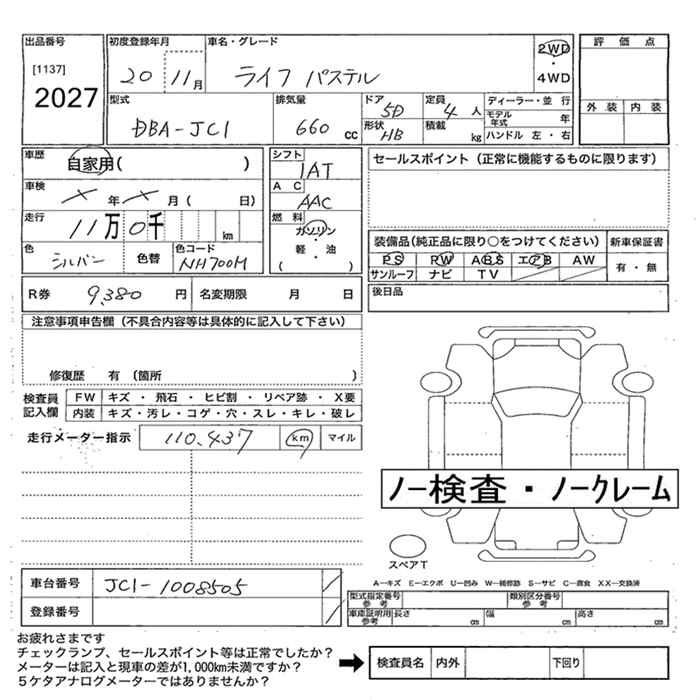 出品番号 初度登録年月 車名・グレード 評価点
[1137]
2027
20 11月 ライフ パステル 2WD・4WD
外装 内装
型式 排気量 ドア 5D 定員 4人 ディーラー・並行
DBA-JC1 660cc 形状 HB 積載 kg モデル年式 年
ハンドル 左・右
車歴 自家用( ) シフト 1AT セールスポイント(正常に機能するものに限ります)
車検 × 年 × 月 ( ) AC AAC
走行 11万0千 km 燃料 ガソリン 軽・油 ( )
装備品(純正品に限り○をつけてください) 新車保証書
色 シルバン 色替 色コード NH700M
PS PW ABS エアB AW 有・無
サンルーフ ナビ TV
R券 9,380円 名変期限 月 日 後日品
注意事項申告欄(不具合内容等は具体的に記入して下さい)
修復歴 有 (箇所 )
検査員記入欄 FW キズ・飛石・ヒビ割・リペア跡・X要
内装 キズ・汚レ・コゲ・穴・スレ・キレ・破レ
走行メーター指示 110,437 km マイル
ノー検査・ノークレーム
スペアT
A―キズ E―エクボ U―凹み W―補修跡 S―サビ C―腐食 XX―交換済
車台番号 JC1-1008505
型式指定番号 参考 類別区分番号 参考
登録番号
車庫証明用 参考 長さ cm 幅 cm 高さ cm
お疲れさまです
チェックランプ、セールスポイント等は正常でしたか?
メーターは記入と現車の差が1,000km未満ですか?
5ケタアナログメーターではありませんか?
検査員名 内外 下回り